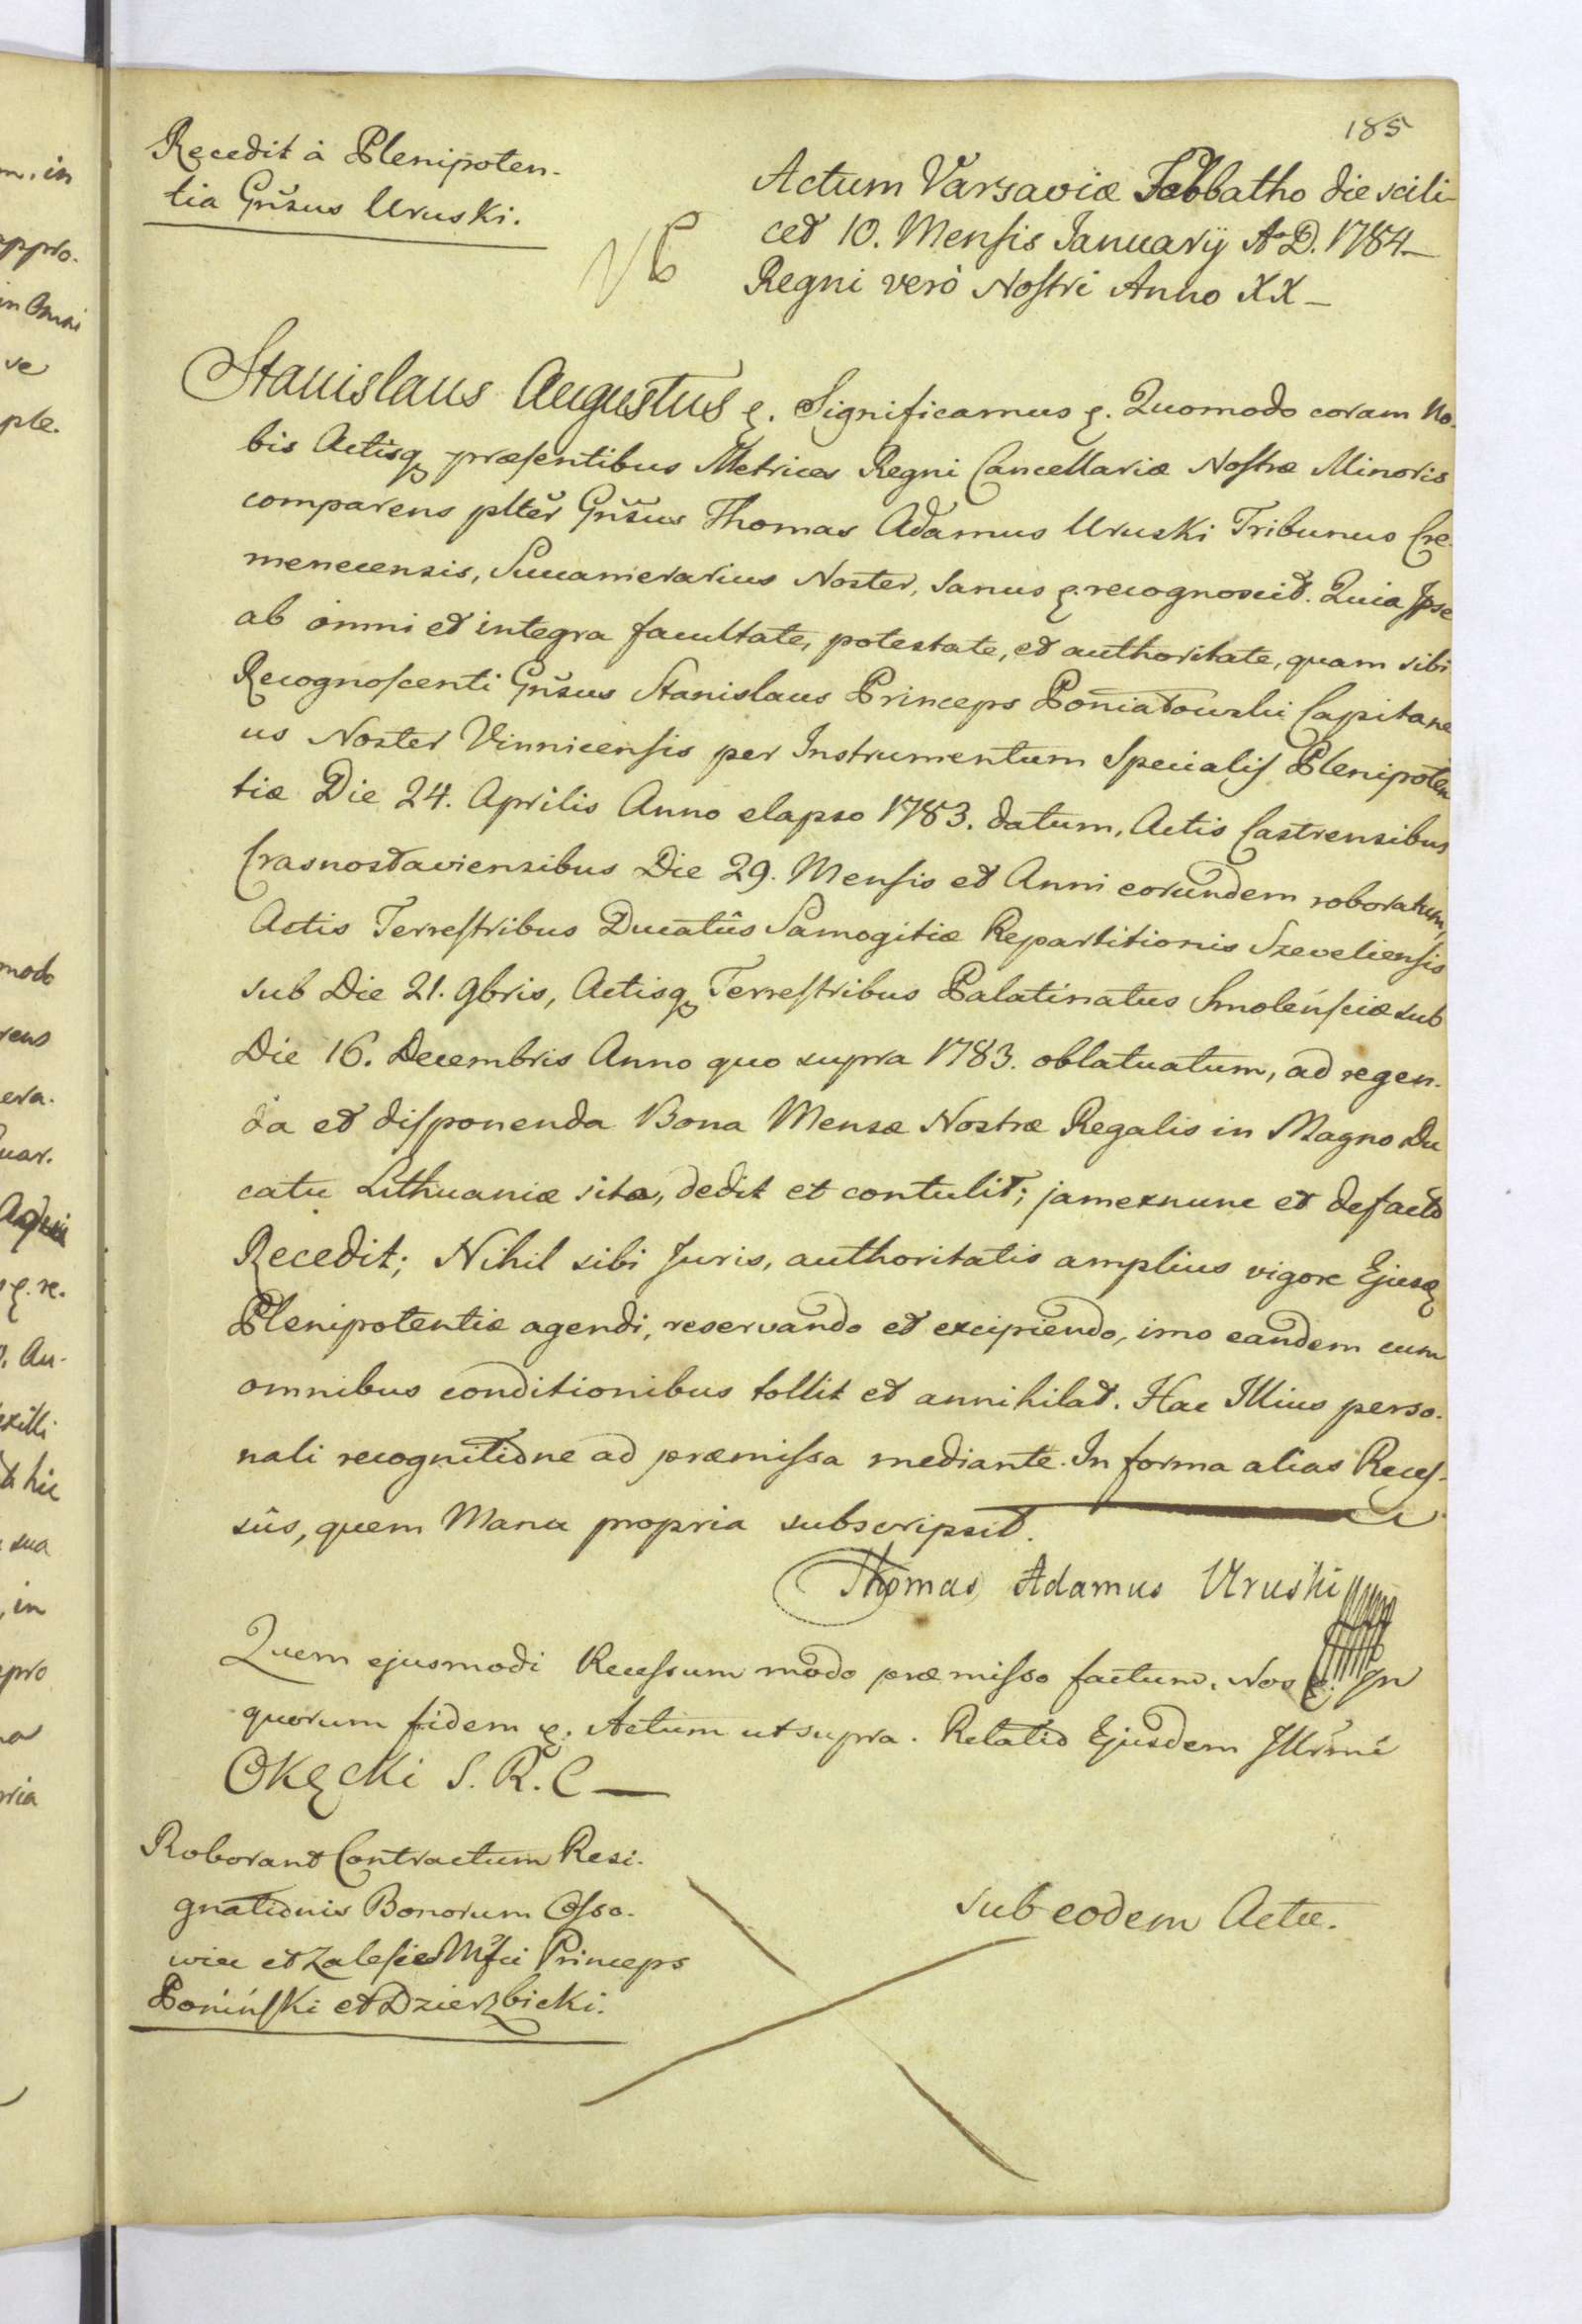 185
Recedit à Plenipoten-
tia Gnsus Uruski.
Actum Varsaviæ Sabbatho die scili-
cet 10. Mensis Januarij Ao D. 1784.
Regni verò Nostri Anno XX
Stanislaus Augustus &. Significamus &. Quomodo coram No-
bis Actisq præsentibus Metrices Regni Cancellariæ Nostræ Minoris
comparens plter Gnsus Thomas Adamus Uruski Tribunus Cre-
menecensis, Succamerarius Noster, Sanus &. recognoscit. Quia Ipse
ab omni et integra facultate, potestate, et authoritate, quam sibi
Recognoscenti Gnsus Stanislaus Princeps Poniatowski Capitane
us Noster Vinnicensis per Instrumentum Specialis Plenipoten
tiæ Die 24. Aprilis Anno elapso 1783. datum, Actis Castrensibus
Crasnostaviensibus Die 29. Mensis et Anni eorundem roboratum,
Actis Terrestribus Ducatûs Samogitiæ Repartitionis Szeveliensis
sub Die 21. 9bris, Actisq Terrestribus Palatinatus Smolensciæ sub
Die 16. Decembris Anno quo supra 1783. oblatuatum, ad regen-
da et disponenda Bona Mensæ Nostræ Regalis in Magno Du
catu Lithuaniæ sita, dedit et contulit; jamexnunc et defacto
Recedit; Nihil sibi Juris, authoritatis amplius vigore Ejusq
Plenipotentiæ agendi, reservando et excipiendo, imo eandem cum
omnibus conditionibus tollit et annihilat. Hac Illius perso-
nali recognitione ad præmissa mediante. In forma alias Reces-
sûs, quem Manu propria subscripsit.
Thomas Adamus Uruski
Quem ejusmodi Recessum modo præmisso factum. Nos &. In
quorum fidem &. Actum ut supra. Relatio Ejusdem Illrmi
Okęcki S. R. C
Roborant Contractum Resi-
gnationis Bonorum Osso-
wiec et Zalesie Mfci Princeps
Poniński et Dzierzbicki.
sub eodem Actu.